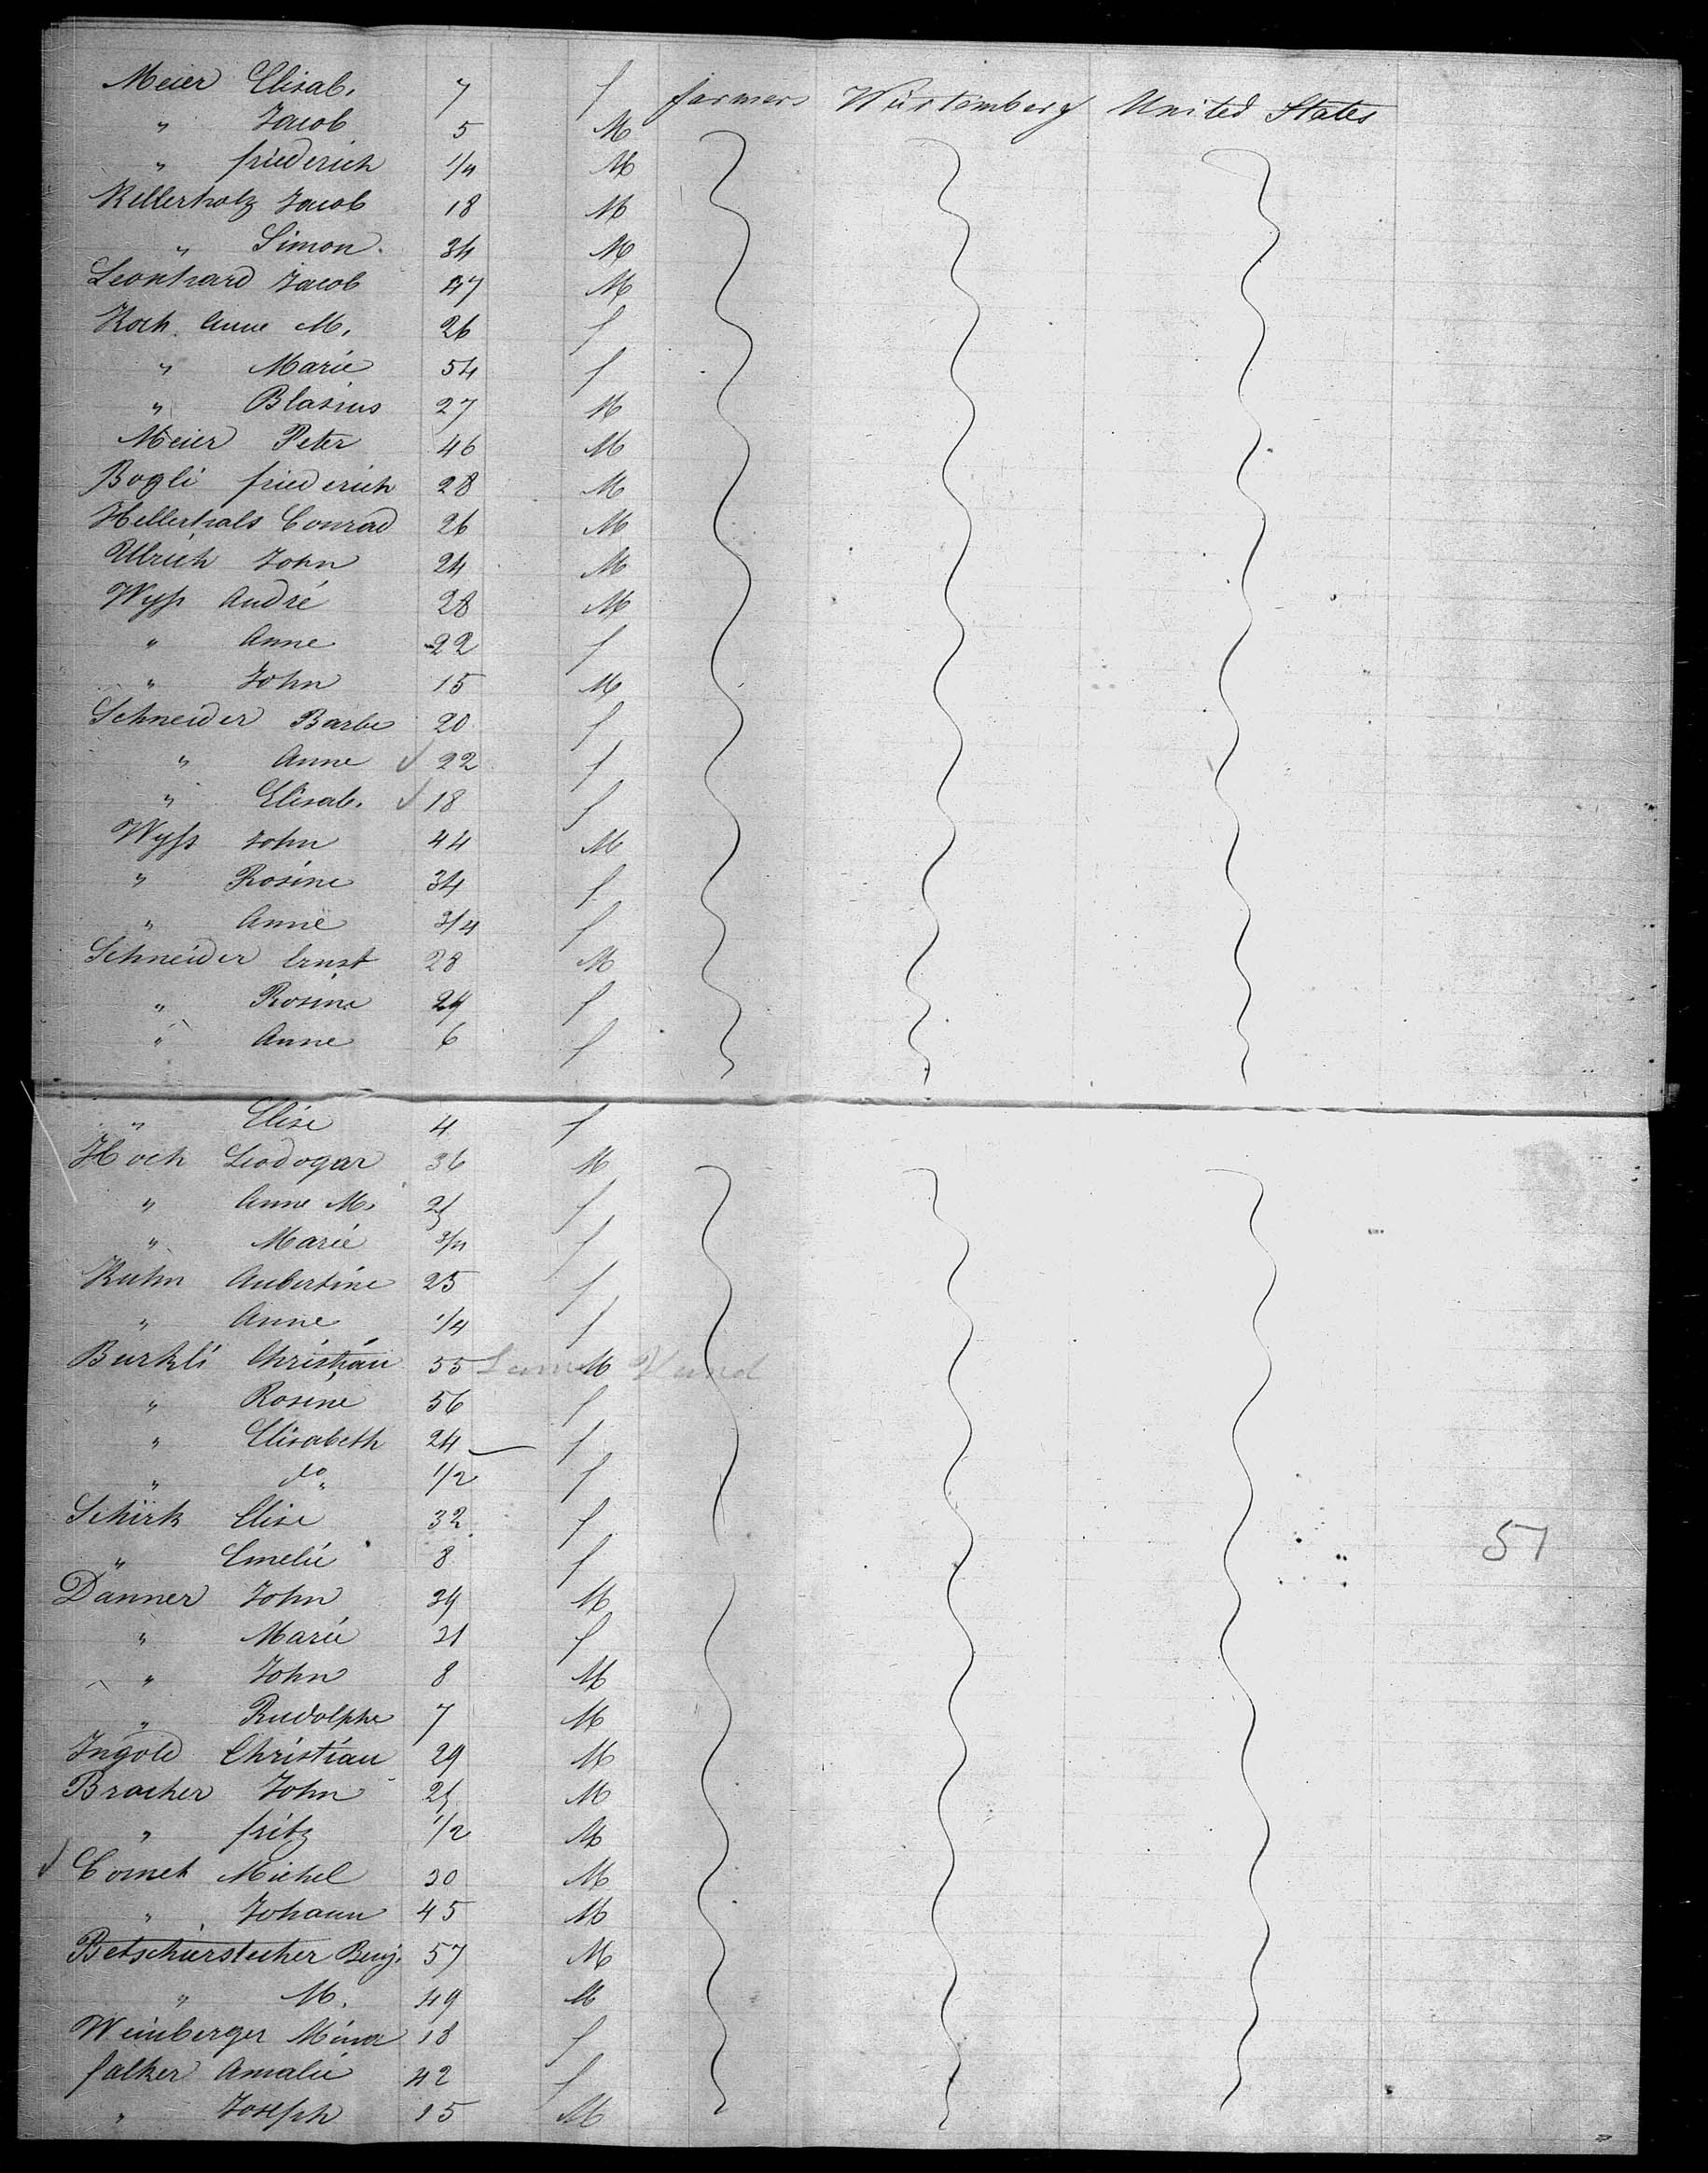 Meier Elisab. 7 f farmers Würtemberg United States
" Jacob 5 M
" friederich 1/4 M
Kellerholz Jacob 18 M
" Simon 34 M
Leonhard Jacob 47 M
Koch Anne M. 26 f
" Marie 54 f
" Blasius 27 M
Meier Peter 46 M
Bogli friederich 28 M
Hellerhals Conrad 26 M
Ulrich John 24 M
Wyss André 28 M
" Anne 22 f
" John 15 M
Schneider Barbe 20 f
" Anne 22 f
" Elisab. 18 f
Wyss John 44 M
" Rosine 34 f
" Anne 3/4 f
Schneider Ernst 28 M
" Rosine 29 f
" Anne 6 f
" Elise 4 f
Hoch Leodogar 36 M
" Anne M. 25 f
" Marie 3/4 f
Kuhn Aubertine 25 f
" Anne 1/4 f
Burkli Christian 55 M
" Rosine 56 f
" Elisabeth 24 f
" do " 1/2 f
Schirk Elise 32 f
" Emelie 8 f
Danner John 39 M
" Marie 31 f
" John 8 M
" Rudolphe 7 M
Ingold Christian 29 M
Bracher John 25 M
" fritz 1/2 M
Cornet Michel 30 M
" Johann 45 M
Betschierstecher Benj. 57 M
" M. 49 M
Weinberger Mina 18 f
falker Amalie 42 f
" Joseph 15 M
51